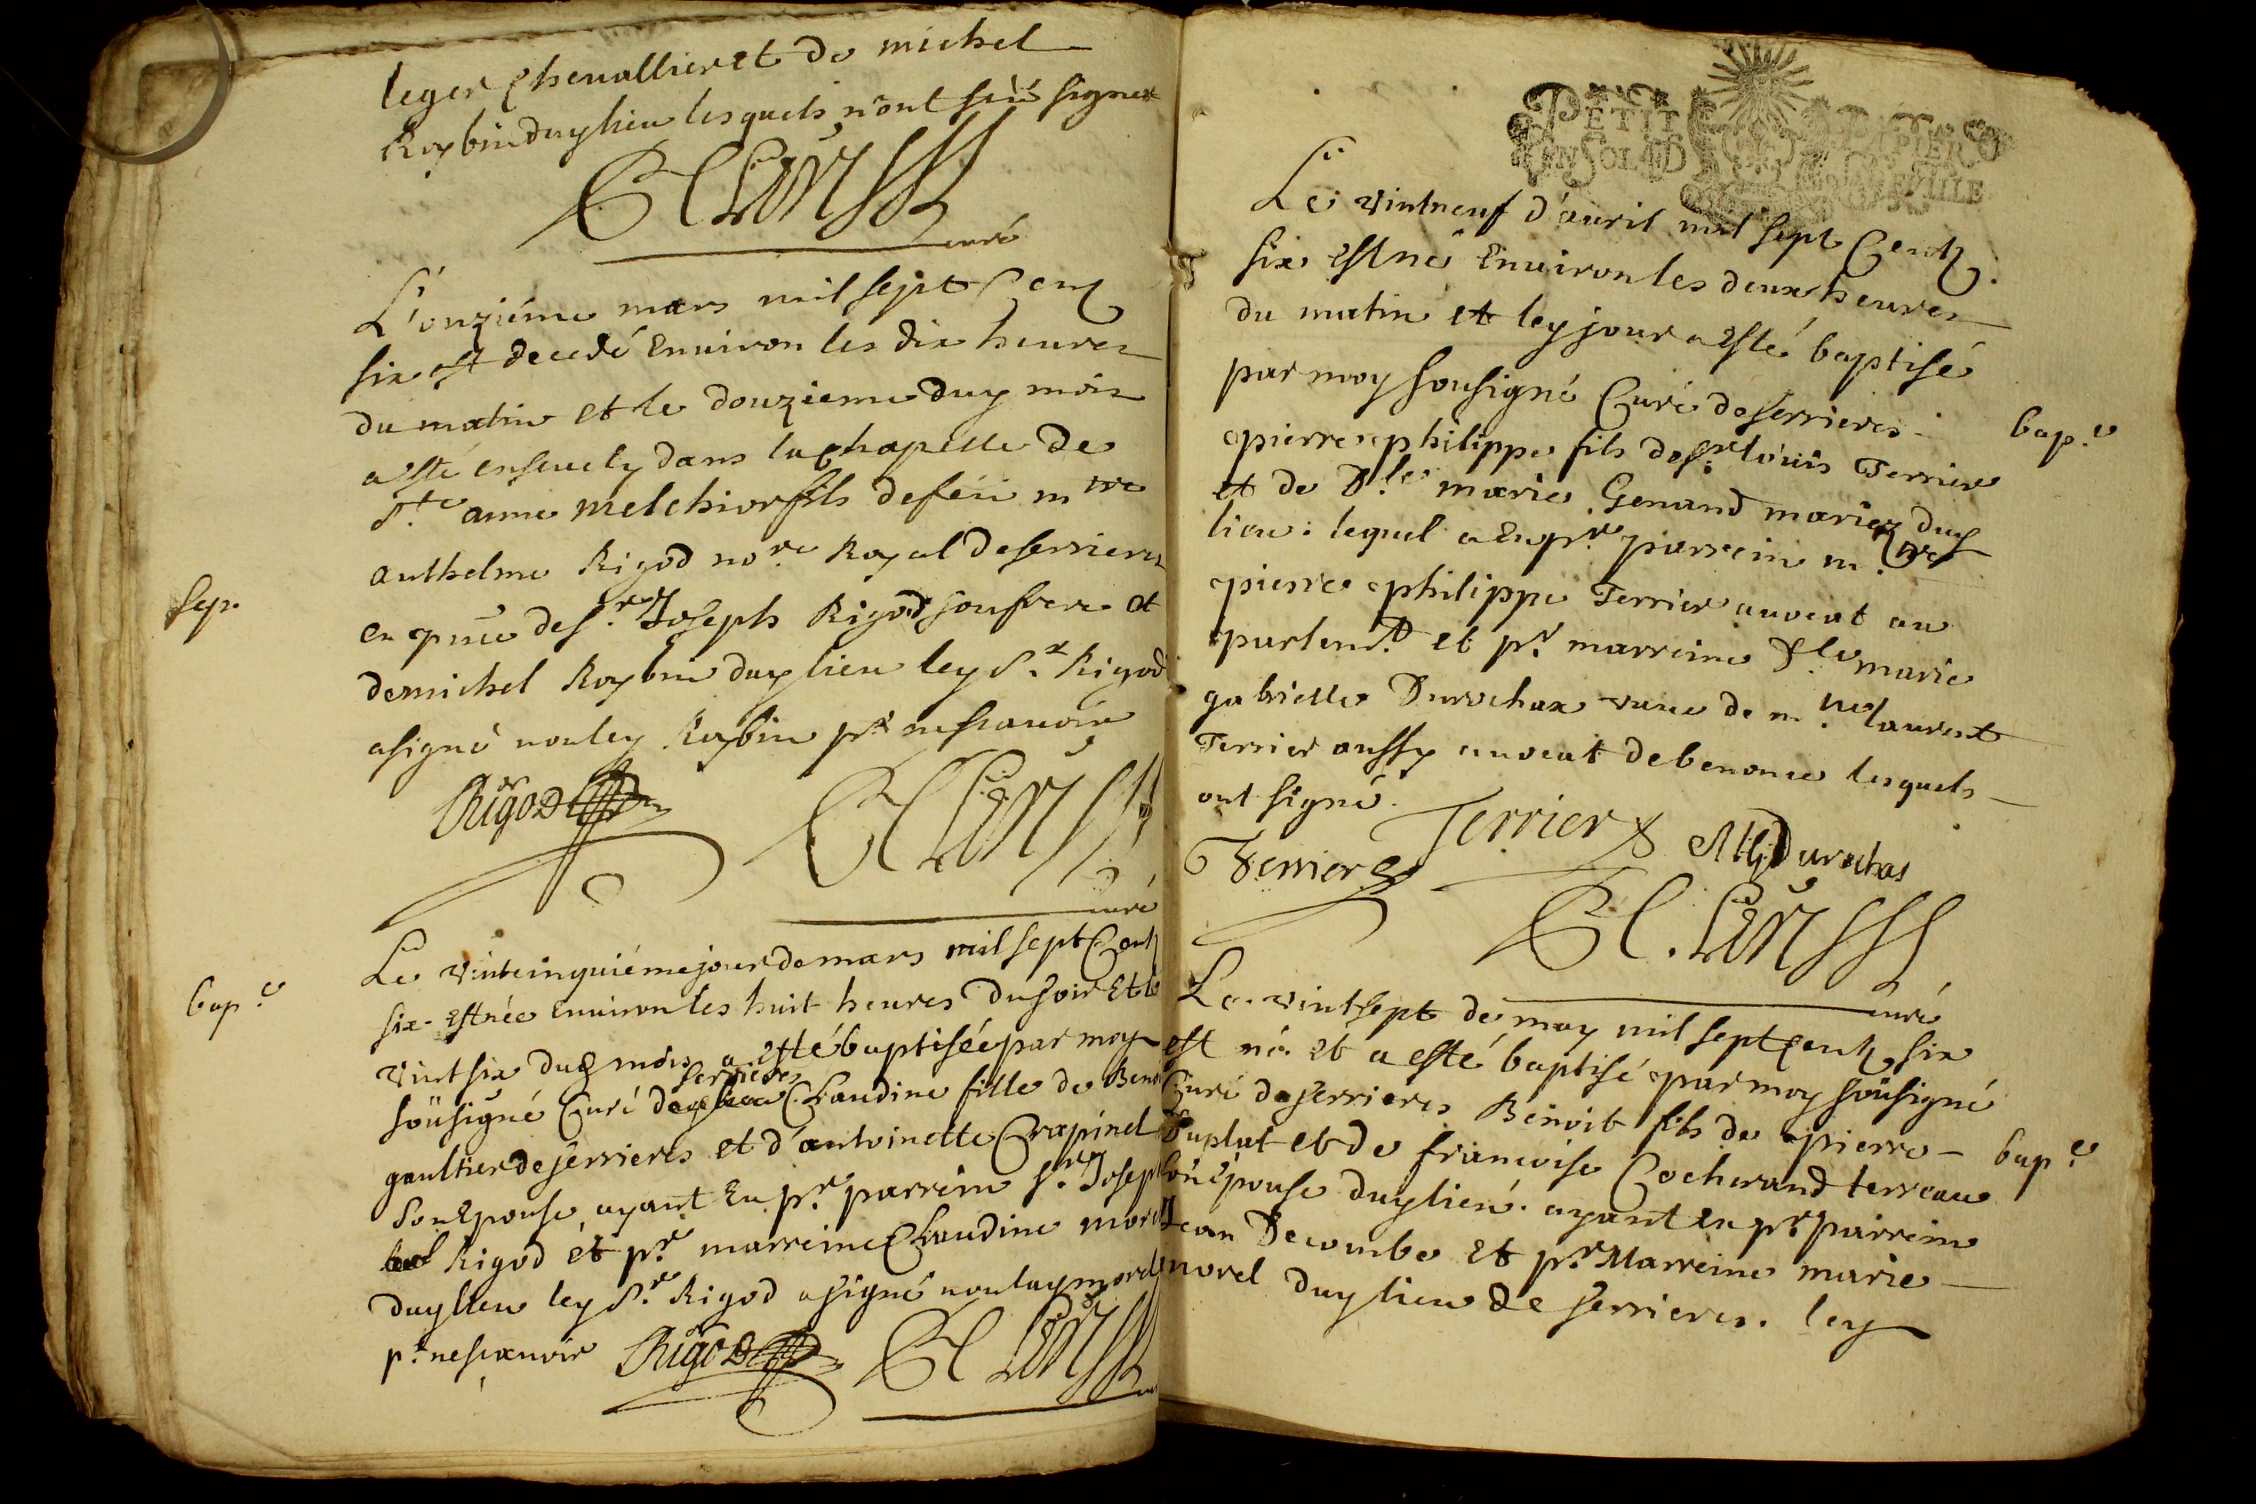 leger Chenallier et de michel
Roybin duy lieu lesquels n'ont sçü signer
curé
L'onziéme mars mil sept Centz
six est decedé Environ les dix heures
du matin et le douzieme duy mois
a esté enseuely dans la Chapelle de
Ste anne melchior fils de feü mtre
Sep.
anthelme Rigod nore Royal de serrieres
en pnce de sr Joseph Rigod son frere et
de michel Roybin duy lieu ley Sr Rigod
a signé non ley Roybin pr ne scauoir
Rigod
curé
Le vintcinquiéme jour de mars mil sept Centz
bap.e
six est née Environ les huit heures du soir Et le
vint six dud mois a esté baptisée par moy
serrieres
soüsigné Curé de Claudine fille de Beno
gaultier de serrieres et d'antoinette Crapinel
son Epouse, ayant Eu pr parrein sr Joseph
Rigod et pr marreine Claudine morel
duy lieu ley Sr Rigod a signé non lay morel
pr ne scauoir Rigod
PETIT PAPIER
EN SOL D
Le vintneuf d'auril mil sept Centz
six est né Enuiron les deux heures
du matin et ley jour a esté baptisé
par moy sousigné Curé de serrieres
bap.e
pierre philippe fils de sr loüis Terrier
et de Dle marie Genand mariez duy
lieu: lequel a Eu pr parrein mtre
pierre philippe Terrier auocat au
parlent et pr marreine Dle marie
gabrielle Durochax vuue de mtre laurent
Terrier aussy auocat de benonce lesquels
ont signé.
Terrier
Terrier
MG Durochas
curé
Le vintsept de may mil sept Centz six
est né et a esté baptisé par moy soüsigné
Curé de serrieres Benoit fils de pierre
bap.e
Duplat et de francoise Cocherand terreau
son Epouse duy lieu. ayant eu pr parrein
Jean Decombe et pr Marreine marie
morel duy lieu de serrieres. ley